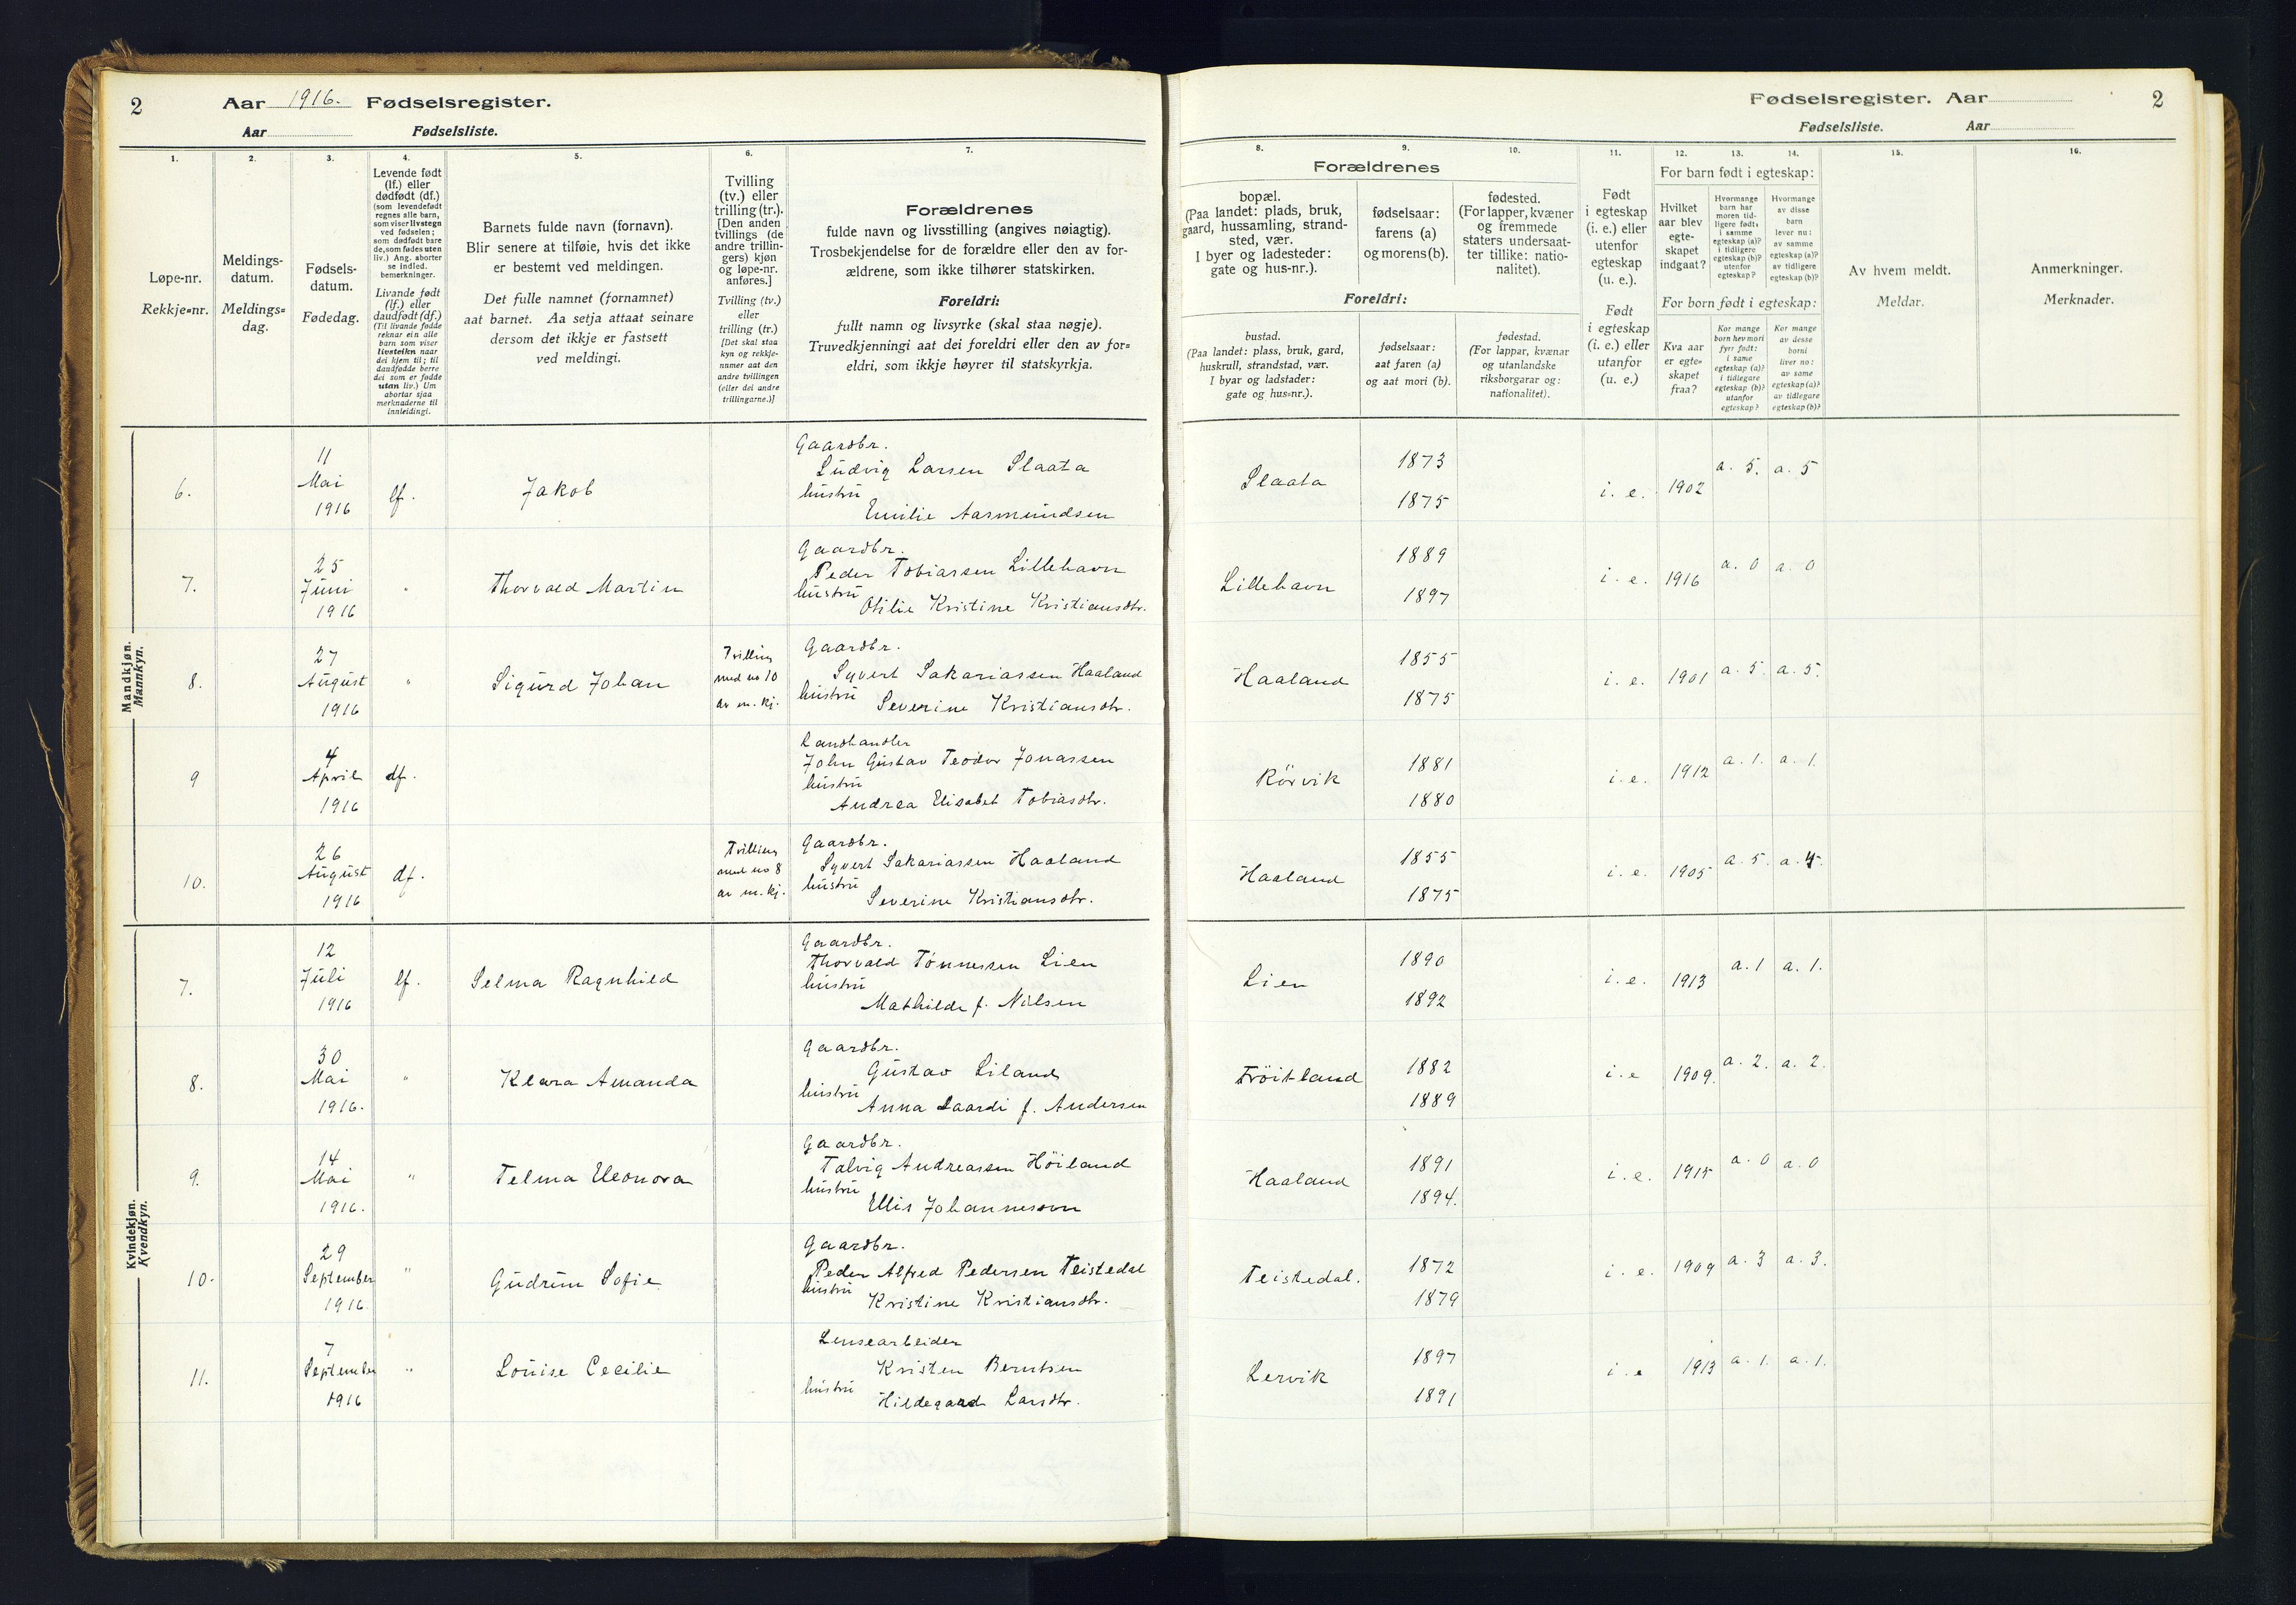 2
Aar 1916. Fødselsregister.
Aar Fødselsliste.
Fødselsregister. Aar
2
Fødselsliste. Aar
1.
Løpe-nr.
Rekkje=nr.
2.
Meldings-
datum.
Meldings=
dag.
3.
Fødsels-
datum.
Fødedag.
4.
Levende født
(lf.) eller
dødfødt (df.)
(som levendefødt
regnes alle barn,
som viser livstegn
ved fødselen;
som dødfødt bare
de, som fødes uten
liv.) Ang. aborter
se indled.
bemerkninger.
Livande født
(lf.) eller
daudfødt (df.)
(Til livande fødde
reknar ein alle
barn som viser
livsteikn naar
dei kjem til; til
daudfødde berre
dei som er fødde
utan liv.) Um
abortar sjaa
merknaderne til
innleidingi.
5.
Barnets fulde navn (fornavn).
Blir senere at tilføie, hvis det ikke
er bestemt ved meldingen.
Det fulle namnet (fornamnet)
aat barnet. Aa setja attaat seinare
dersom det ikkje er fastsett
ved meldingi.
6.
Tvilling
(tv.) eller
trilling (tr.).
[Den anden
tvillings (de
andre trillin-
gers) kjøn
og løpe-nr.
anføres.]
Tvilling (tv.)
eller
trilling (tr.)
[Det skal staa
kyn og rekkje-
nnmer aat den
andre tvillingen
(eller dei andre
trillingarne.)]
7.
Forældrenes
fulde navn og livsstilling (angives nøiagtig).
Trosbekjendelse for de forældre eller den av for-
ældrene, som ikke tilhører statskirken.
Foreldri:
fullt namn og livsyrke (skal staa nøgje).
Truvedkjenningi aat dei foreldri eller den av for=
eldri, som ikkje høyrer til statskyrkja.
Forældrenes
8.
bopæl.
(Paa landet: plads, bruk,
gaard, hussamling, strand-
sted, vær.
I byer og ladesteder:
gate og hus-nr.).
9.
fødselsaar:
farens (a)
og morens (b).
10.
fødested.
(For lapper, kvæner
og fremmede
staters undersaat-
ter tillike: natio-
nalitet).
Foreldri:
bustad.
(Paa landet: plass, bruk, gard,
huskrull, strandstad, vær.
I byar og ladstader:
gate og hus=nr.).
fødselsaar:
aat faren (a)
og aat mori (b).
fødestad.
(For lappar, kvænar
og utanlandske
riksborgarar og:
nationalitet).
11.
Født
i egteskap
(i. e.) eller
utenfor
egteskap
(u. e.).
Født
i egteskap
(i. e.) eller
utanfor
(u. e.)
12. 13. 14.
For barn født i egteskap:
Hvilket
aar blev
egte-
skapet
indgaat?
Hvormange
barn har
moren tid-
ligere født:
i samme
egteskap (a)?
i tidligere
egteskap (b)?
utenfor
egteskap?
Hvormange
av disse
barn
lever nu:
av samme
egteskap (a)?
av tidligere
egteskap (b)?
For born født i egteskap:
Kva aar
er egte=
skapet
fraa?
Kor mange
born hev mori
fyrr født:
i same
egteskap (a)?
i tidlegare
egteskap (b)?
utanfor
egteskap?
Kor mange
av desse
borni
liver no:
av same
egteskap (a)?
av tidlegare
egteskap (b)?
15.
Av hvem meldt.
Meldar.
16.
Anmerkninger.
Merknader.
Mandkjøn.
Mannkyn.
6. 11 Mai 1916 lf. Jakob
Gaardbr.
Ludvig Larsen Slaata
hustru
Emilie Aasmundsen
Slaata 1873 1875 i. e. 1902 a. 5. a. 5
7. 25 Juni 1916 " Thorvald Martin
Gaardbr.
Peder Tobiassen Lillehavn
hustru
Otilie Kristine Kristiansdtr.
Lillehavn 1889 1897 i. e. 1916 a. 0 a. 0
8. 27 August 1916 " Sigurd Johan
Tvilling
med no 10
av m. kj.
Gaardbr.
Syvert Sakariassen Haaland
hustru
Severine Kristiansdtr.
Haaland 1855 1875 i. e. 1901 a. 5. a. 5.
9 4 April 1916 df.
Landhandler
John Gustav Teodor Jonassen
hustru
Andrea Elisabet Tobiasdtr.
Rörvik 1881 1880 i. e. 1912 a. 1. a. 1.
10. 26 August 1916 df.
Tvilling
med no 8
av m. kj.
Gaardbr.
Syvert Sakariassen Haaland
hustru
Severine Kristiansdtr.
Haaland 1855 1875 i. e. 1905 a. 5. a. 4.
Kvindekjøn.
Kvendkyn.
7. 12 Juli 1916 lf. Selma Ragnhild
Gaardbr.
Thorvald Tönnessen Lien
hustru
Mathilde f. Nilsen
Lien 1890 1892 i. e. 1913 a. 1 a. 1.
8. 30 Mai 1916. " Klara Amanda
Gaardbr.
Gustav Liland
hustru
Anna f. Andersen
Tröitland 1882 1889 i. e 1909. a. 2. a. 2.
9. 14 Mai 1916. " Telma Eleonora
Gaardbr.
Tolvig Andreassen Höiland
hustru
Ellis Johannesson
Haaland 1891 1894. i. e. 1915 a. 0 a. 0
10. 29 September 1916. " Gudrun Sofie.
Gaardbr.
Peder Alfred Pedersen Teistedal
hustru
Kristine Kristiansdtr.
Teistedal. 1872 1879 i. e. 1909 a. 3 a. 3.
11. 7 September 1916 " Louise Cecilie
Lensearbeider
Kristen Berntsen
hustru
Hildegaard Larsdtr.
Lervik 1897 1891 i. e 1913 a. 1. a. 1.